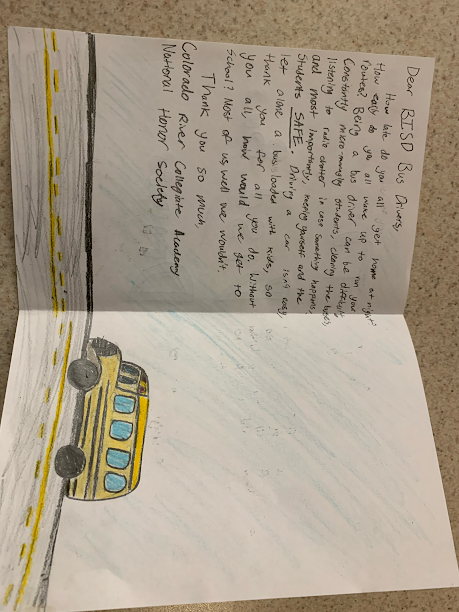 Dear BISD Bus Drivers,
How late do you all get home at night?
How early do you all wake up to run your
routes? Being a bus driver can be difficult
Constantly micro-managing students, cleaning the buses,
listening to radio chatter in case something happens,
and most importantly, keeping yourself and the
Students SAFE. Driving a car isn't easy,
let alone a bus loaded with kids, so
thank you for all you do. Without
you all, how would we get to
school? Most of us, well we wouldn't.
Thank you so much
Colorado River Collegiate Academy
National Honor Society